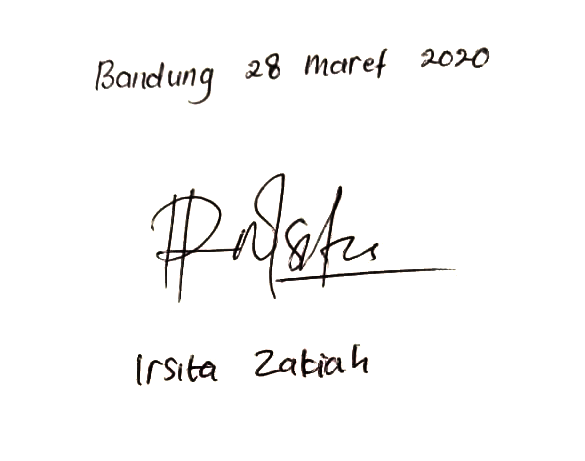 Bandung 28 Maret 2020
Irsita Zakiah